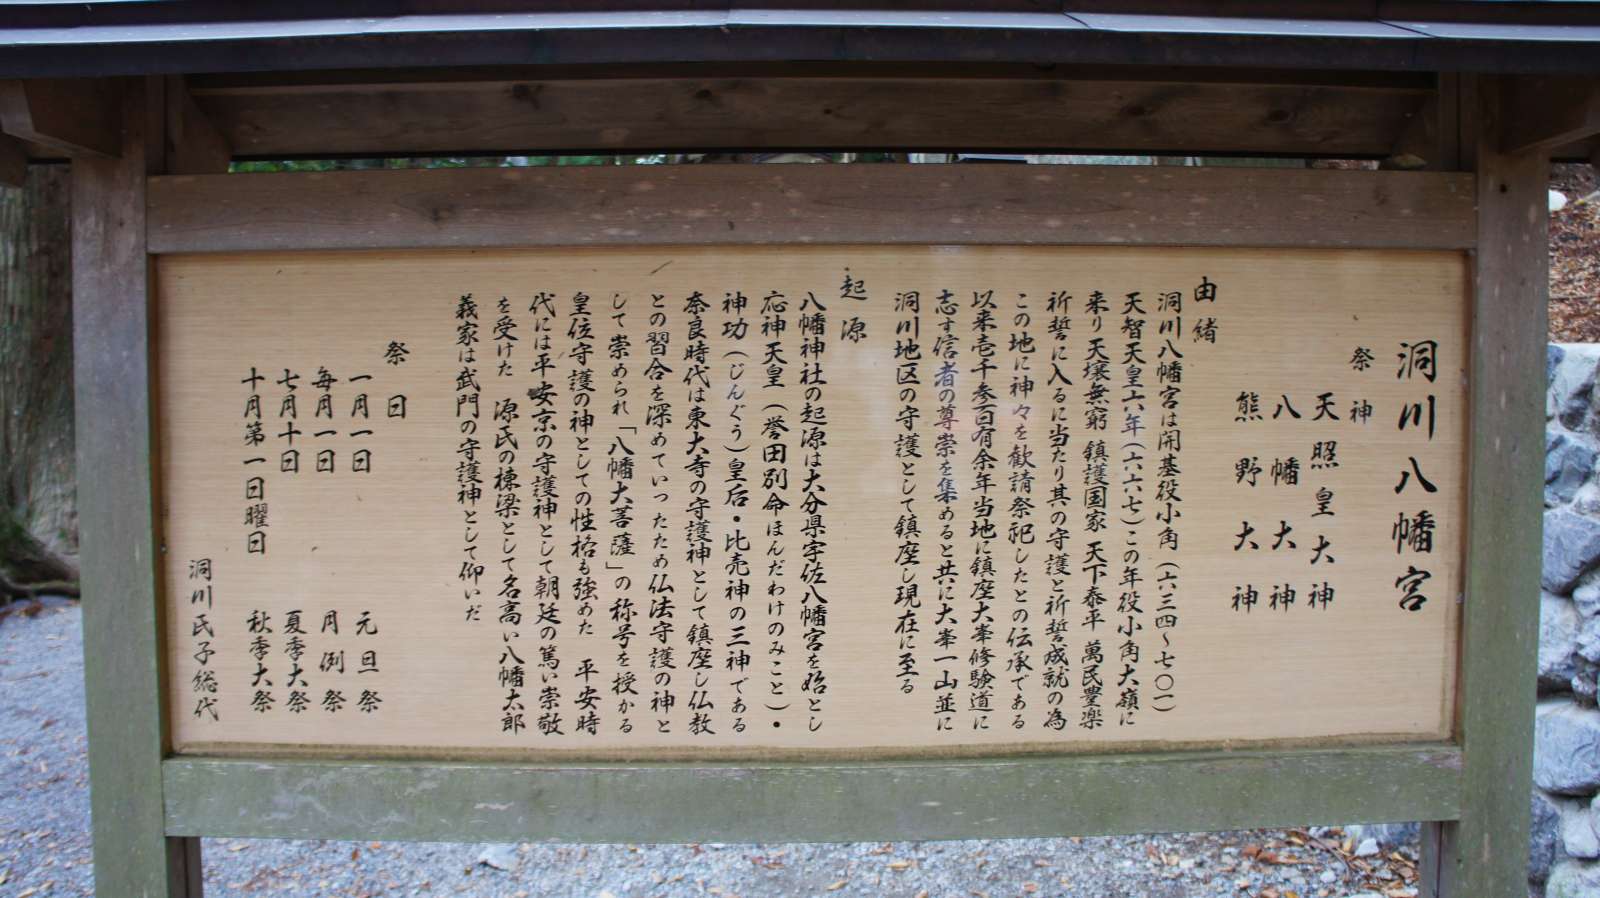 洞川八幡宮
祭神
天照皇大神
八幡大神
熊野大神
由緒
洞川八幡宮は開基役小角(六三四〜七〇一)
天智天皇六年(六六七)この年役小角大嶺に
来り天壌無窮 鎮護国家 天下泰平 萬民豊楽
祈誓に入るに当たり其の守護と祈誓成就の為
この地に神々を歓請祭祀したとの伝承である
以来壱千参百有余年当地に鎮座大峯修験道に
志す信者の尊崇を集めると共に大峯一山並に
洞川地区の守護として鎮座し現在に至る
起源
八幡神社の起源は大分県宇佐八幡宮を始とし
応神天皇(誉田別命ほんだわけのみこと)・
神功(じんぐう)皇后・比売神の三神である
奈良時代は東大寺の守護神として鎮座し仏教
との習合を深めていったため仏法守護の神と
して崇められ「八幡大菩薩」の称号を授かる
皇位守護の神としての性格も強めた 平安時
代には平安京の守護神として朝廷の篤い崇敬
を受けた 源氏の棟梁として名高い八幡太郎
義家は武門の守護神として仰いだ
祭日
一月一日 元旦祭
毎月一日 月例祭
七月十日 夏季大祭
十月第一日曜日 秋季大祭
洞川氏子総代